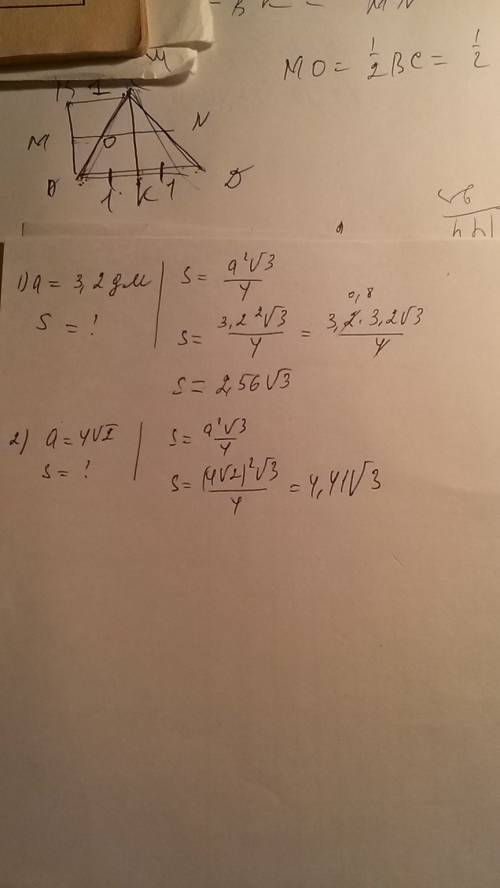 MO = 1/2 BC = 1/2
M
O
N
K
1) a = 3,2 дм | S = a²√3/4
S = ! | S = 3,2²√3/4 = 3,2 · 3,2√3/4
0,8
S = 2,56√3
2) a = 4√2 | S = a²√3/4
S = ! | S = (4√2)²√3/4 = 4,41√3